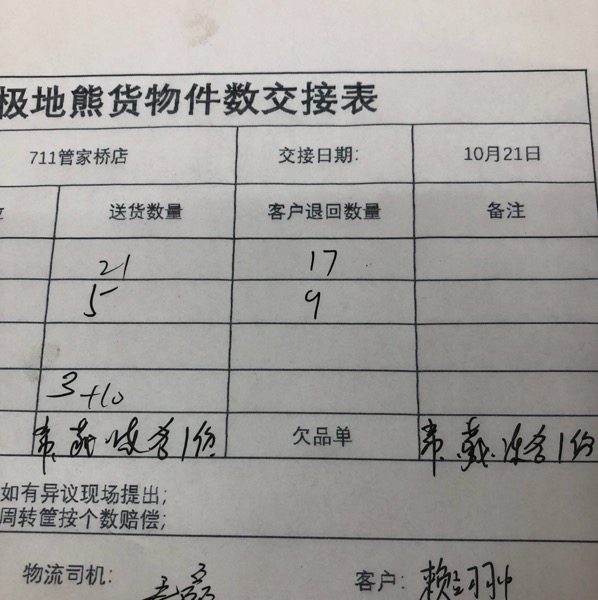 极地熊货物件数交接表
711管家桥店 交接日期: 10月21日
位 送货数量 客户退回数量 备注
21 17
5 9
3+10
1份 欠品单 1份
如有异议现场提出;
周转筐按个数赔偿;
物流司机: 客户: